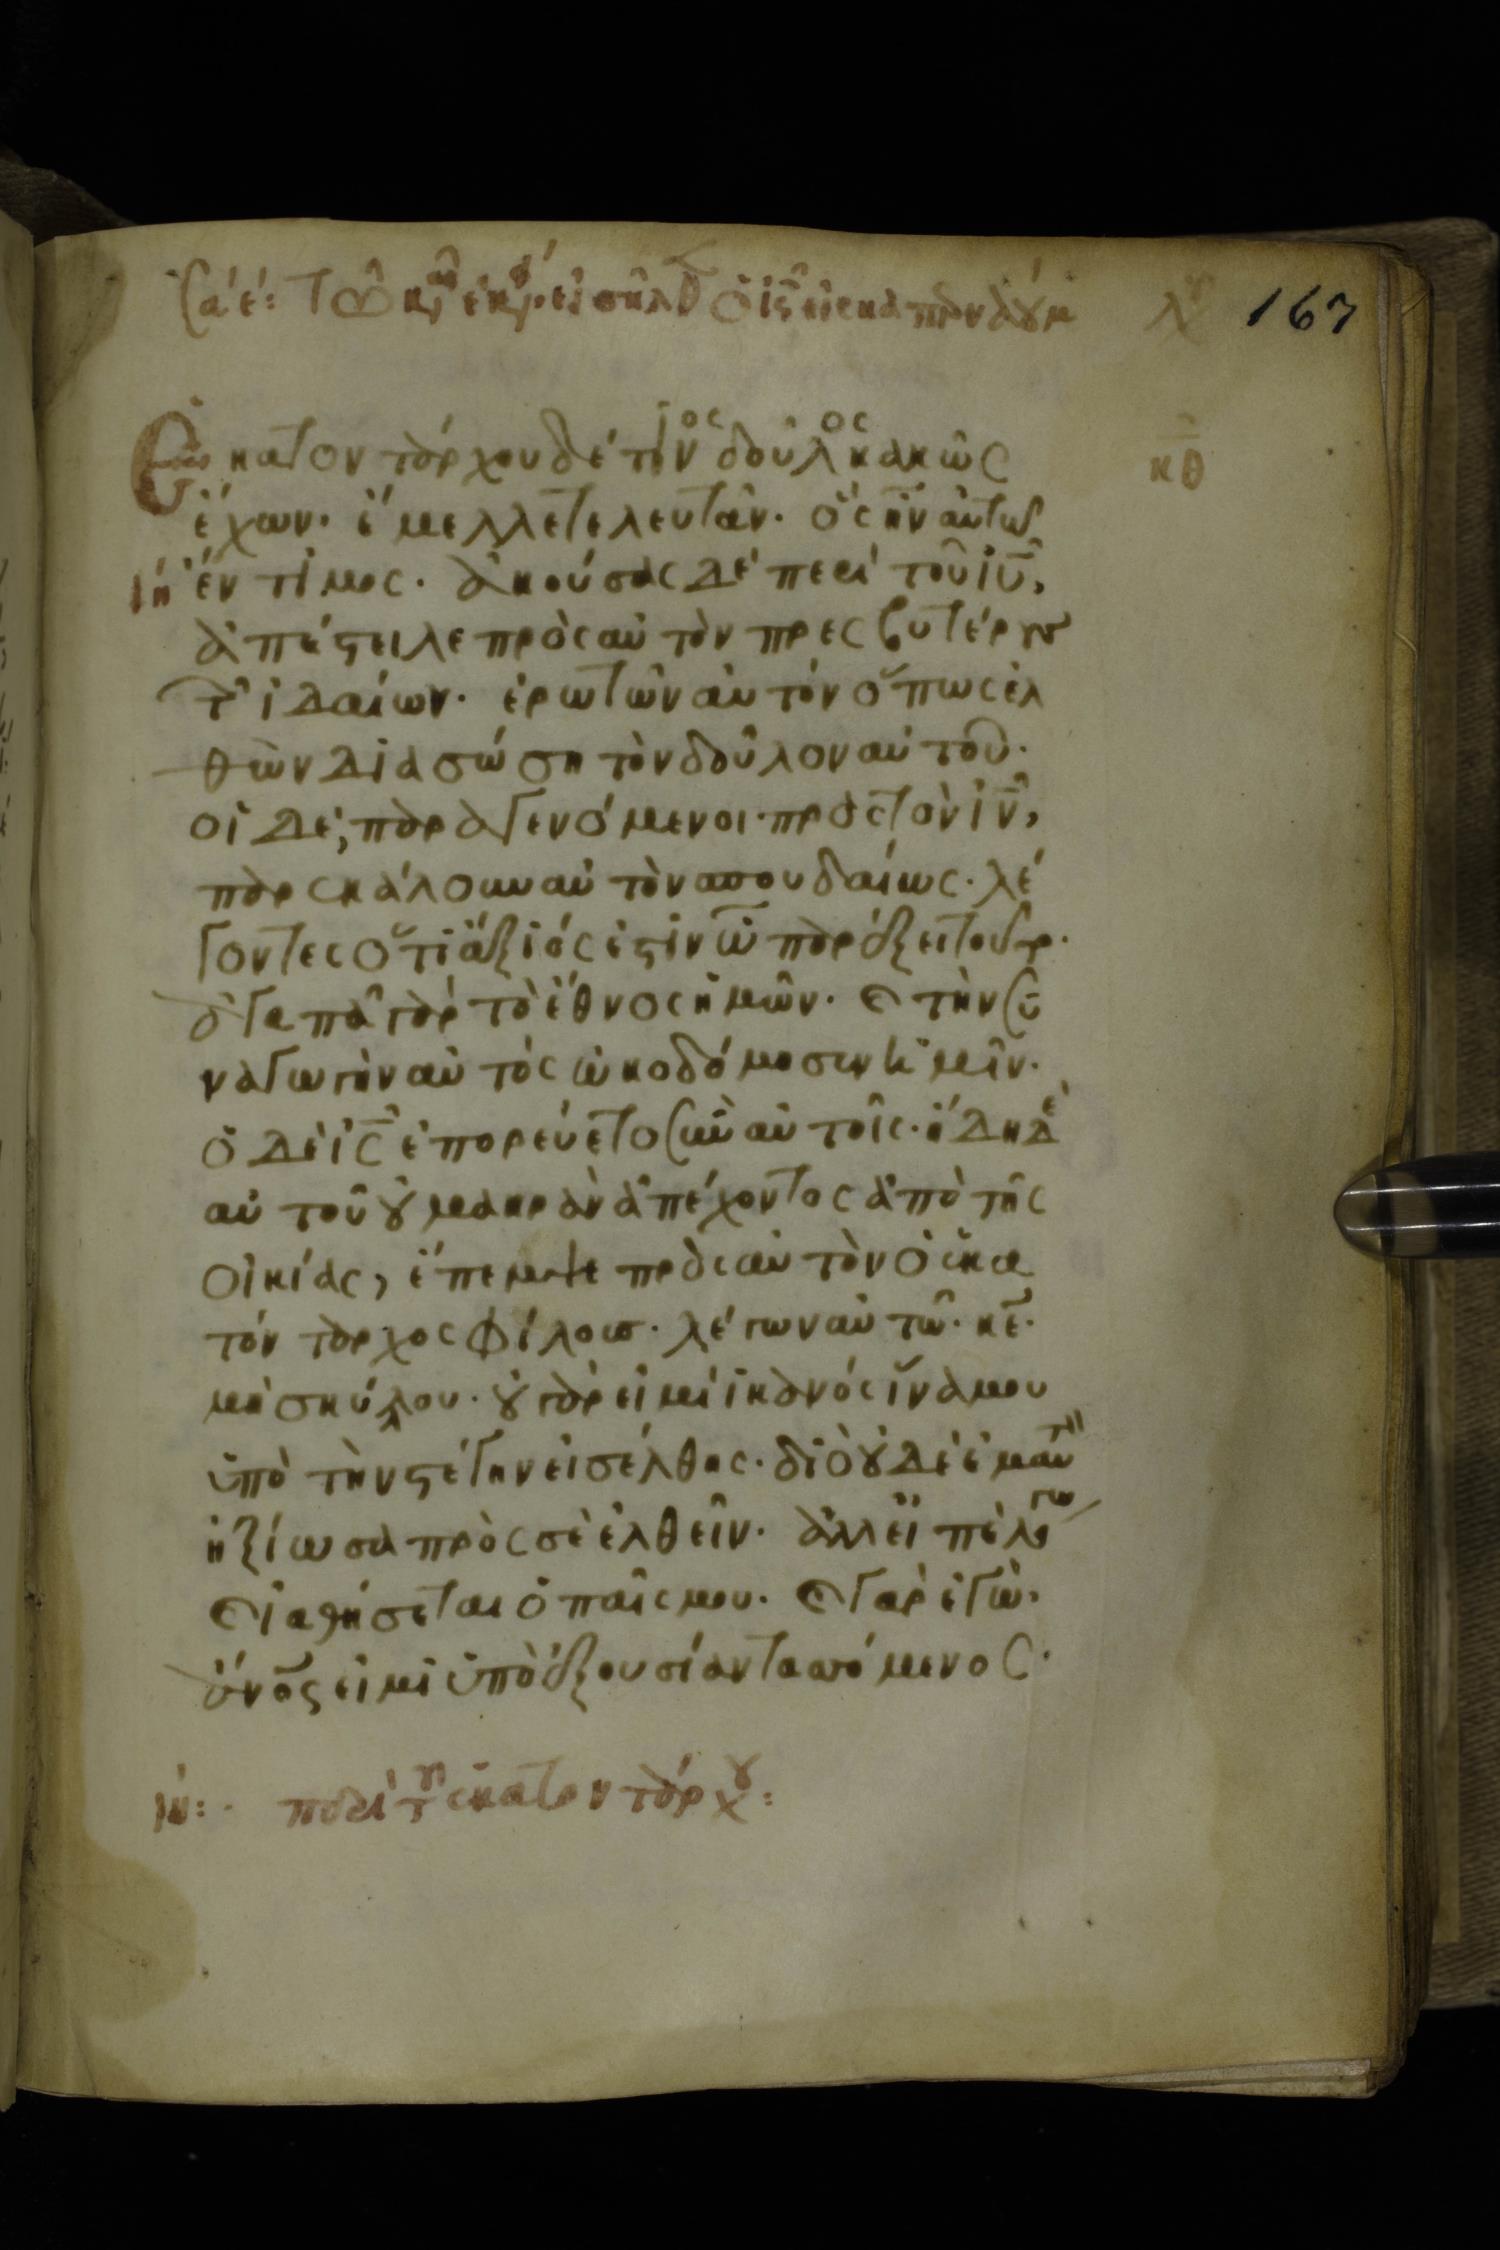 τῶ κρῶ ἐκρ εἰσῆλθ ὁ ἰς εἰς καπερναούμ 167
κθ
Ἑκατοντάρχου δέ τινος δοῦλος κακῶς
ἔχων· ἔμελλε τελευτᾶν· ὃς ἦν αὐτῶ
ιη ἔντιμος· ἀκούσας δὲ περὶ τοῦ ἰῦ,
ἀπέστειλε πρὸς αὐτὸν πρεσβυτέρους
τῶν ἰουδαίων· ἐρωτῶν αὐτόν ὅπως ἐλ
θὼν διασώση τὸν δοῦλον αὐτοῦ·
οἱ δέ, παραγενόμενοι· πρὸς τὸν ἰν,
παρεκάλουν αὐτὸν σπουδαίως· λέ
γοντες ὅτι ἄξιός ἐστιν ὧ παρέξει τοῦτο·
ἀγαπᾶ γὰρ τὸ ἔθνος ἡμῶν· καὶ τὴν συ
ναγωγὴν αὐτὸς ὠκοδόμησεν ἡμῖν·
ὁ δὲ ἰς ἐπορεύετο σὺν αὐτοῖς· ἤδη δὲ
αὐτοῦ οὐ μακρὰν ἀπέχοντος ἀπὸ τῆς
οἰκίας, ἔπεμψε πρὸς αὐτὸν ὁ ἑκα
τόνταρχος φίλους· λέγων αὐτῶ· κε·
μὴ σκύλλου· οὐ γὰρ εἰμὶ ἱκανός ἵνα μου
ὑπὸ τὴν στέγην εἰσέλθης· διὸ οὐδὲ ἐμαυτὸν
ἠξίωσα πρὸς σὲ ἐλθεῖν· ἀλλ εἰπὲ λόγω
καὶ ἰαθήσεται ὁ παῖς μου· καὶ γὰρ ἐγὼ·
ἄνος εἰμὶ ὑπὸ ἐξουσίαν τασσόμενος·
ιη: περὶ τοῦ ἑκατοντάρχου: